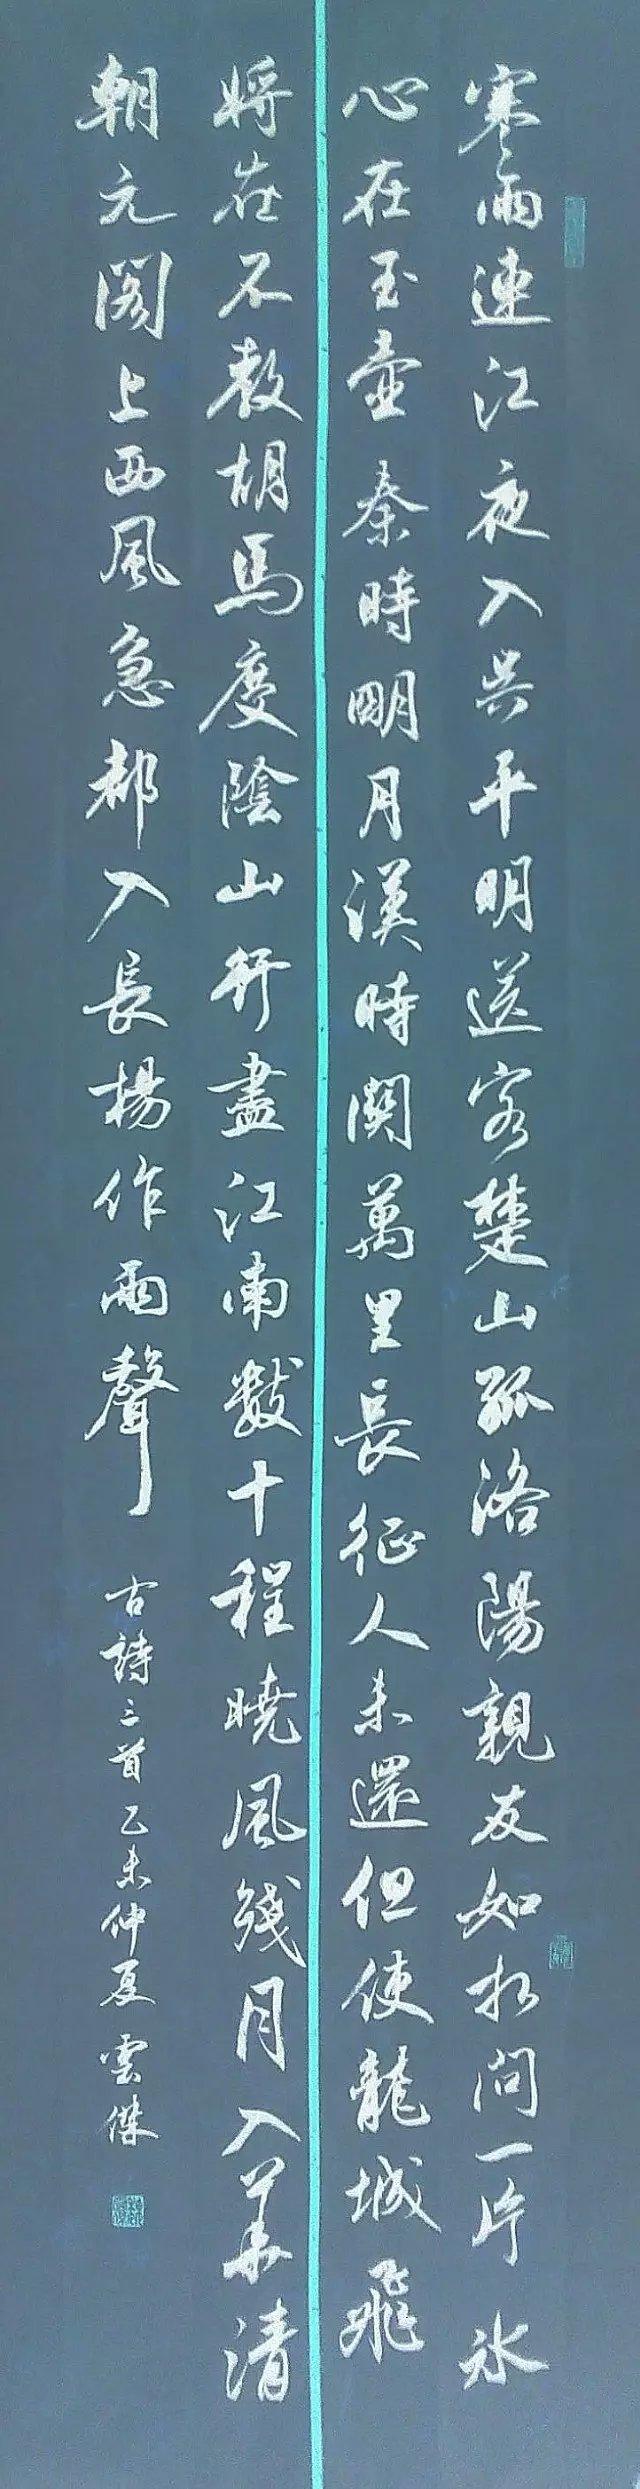 寒雨連江夜入吳平明送客楚山孤洛陽親友如相問一片氷
心在玉壺秦時明月漢時關萬里長征人未還但使龍城飛
將在不教胡馬度陰山行盡江南數十程曉風殘月入華清
朝元閣上西風急都入長楊作雨聲
古詩三首乙未仲夏雲傑